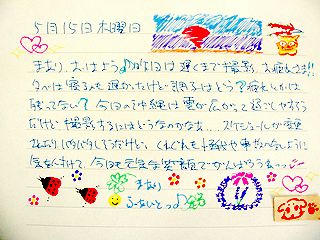 5月15日 木曜日
まあり、おはよう♪ 昨日は遅くまで撮影、お疲れさま!!
夕べは寝るのも遅かったけど調子はどう?疲れとかは
残ってない?今日の沖縄は雲が広がって過ごしやすそう
だけど撮影するにはどうなのかなぁ…。スケジュールが変更
になったり いろいろしそうだけど、くれぐれも 怪我や事故のないように
気をつけて、今日も元気な笑顔でがんばろうねっ
まあり
ふぁいとっ♪